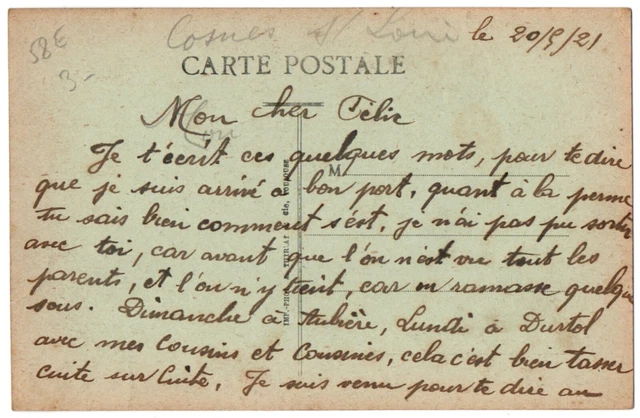 58E
3-
Cosnes s/ Loire le 20/5/21
CARTE POSTALE
Mon cher Félix
Je t'écrit ces quelques mots, pour te dire
que je suis arrivé a bon port, quant à la perme
tu sais bien comment s'ést, je n'ai pas pu sortir
avec toi, car avant que l'ón n'est vu tout les
parents, et l'ón n'y tient, car on ramasse quelque
sous. Dimanche à Aubière, Lundi à Durtol
avec mes Cousins et Cousines, cela c'est bien tasser
cuite sur Cuite. Je suis venu pour te dire au
M